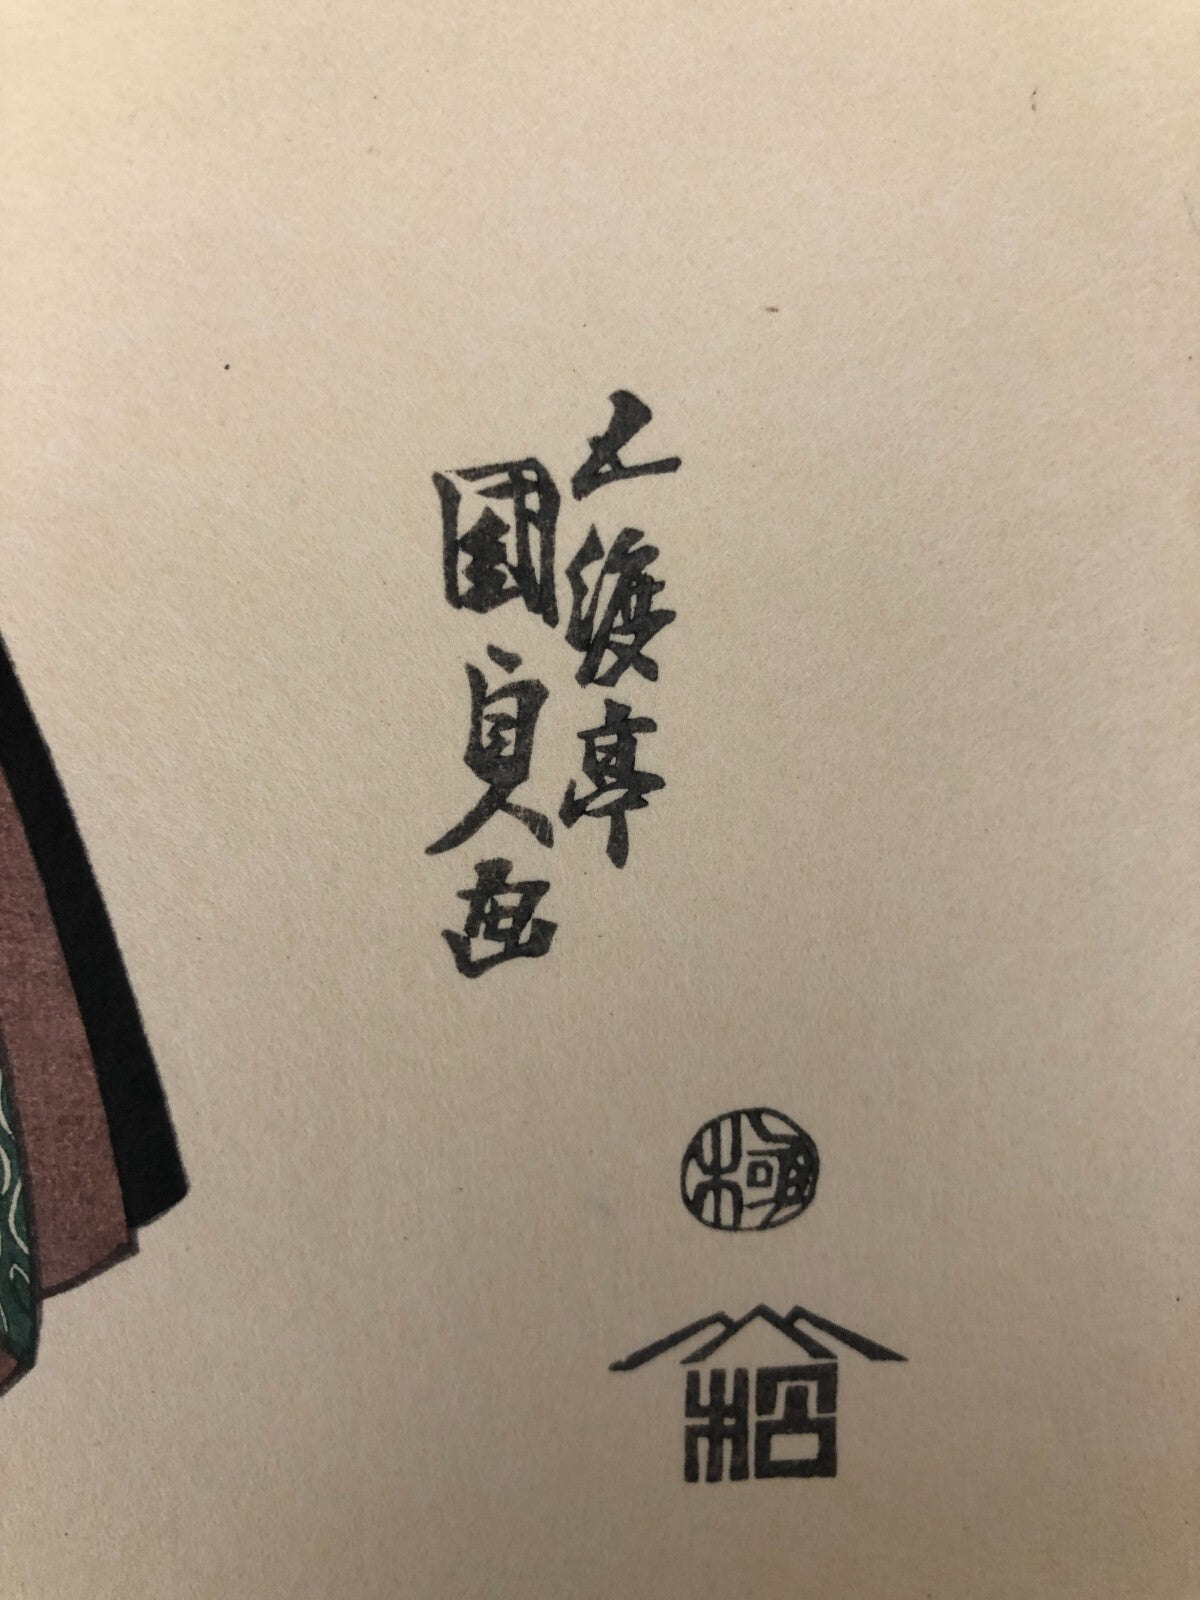 五渡亭
國貞画
極
松